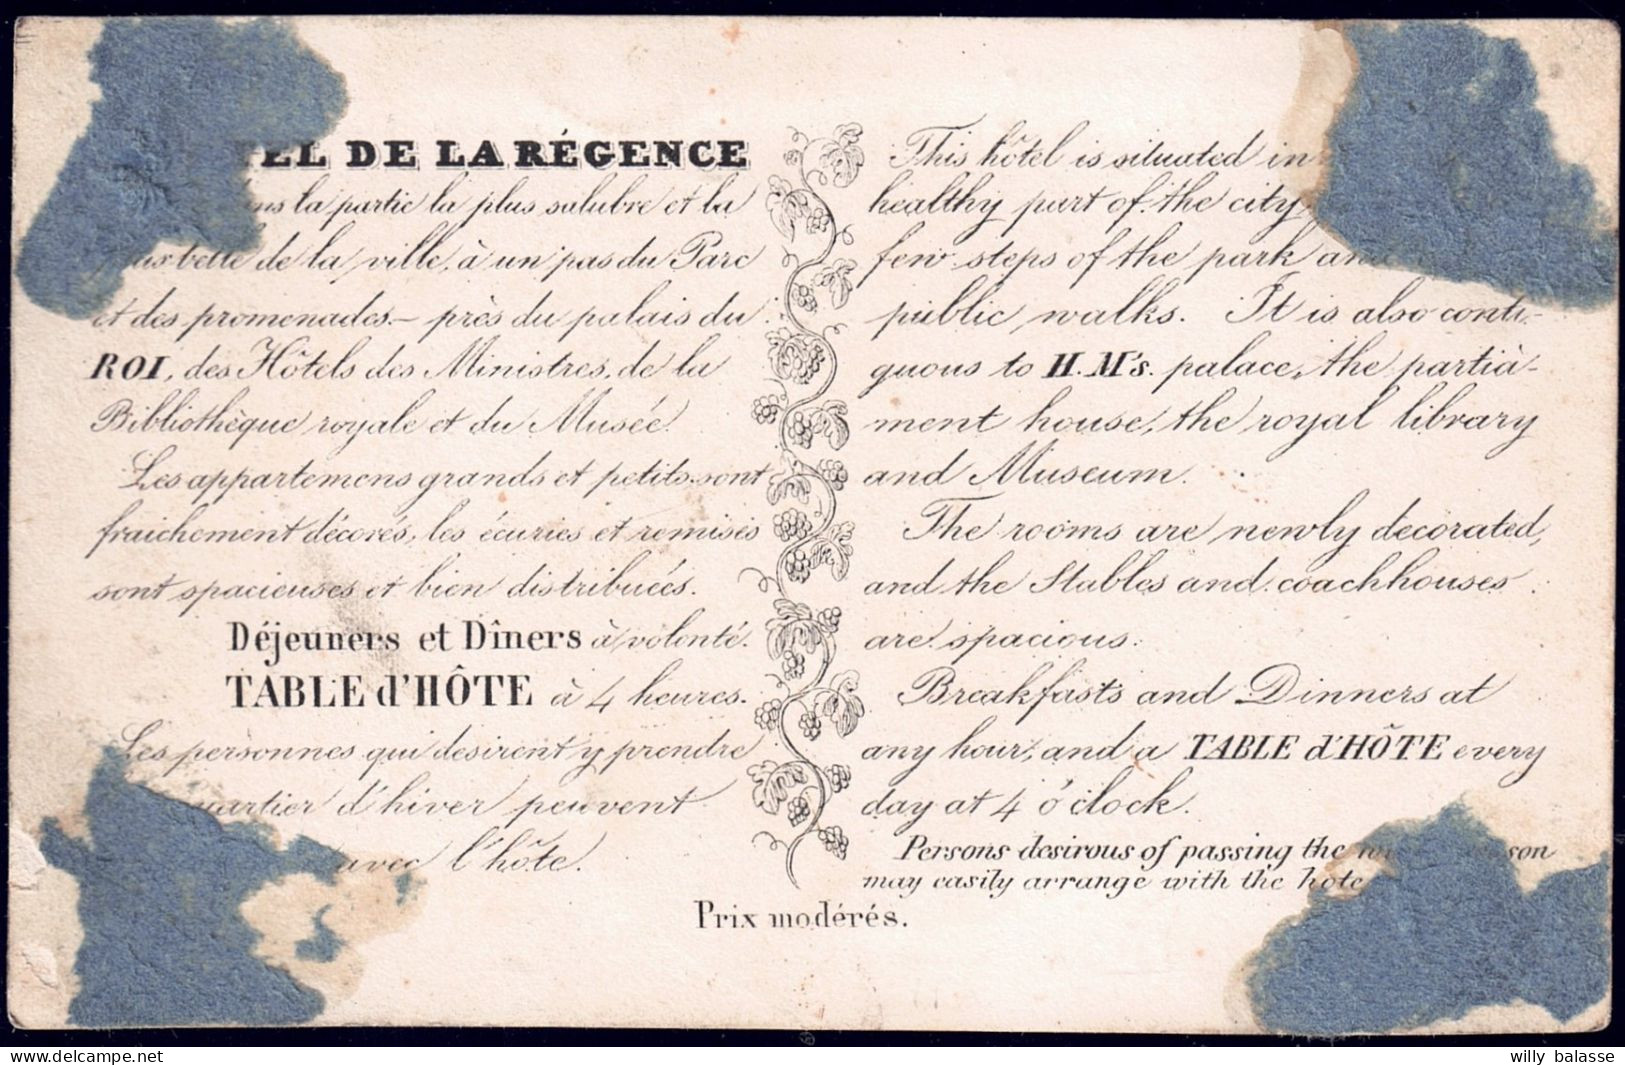 DE LA RÉGENCE
la partie la plus salubre et la
belle de la ville, à un pas du Parc
et des promenades.— près du palais du
ROI, des Hôtels des Ministres, de la
Bibliothèque royale et du Musée.
Les appartemens grands et petits sont
fraichement décorés, les écuries et remises
sont spacieuses et bien distribuées.
Déjeuners et Dîners à volonté.
TABLE d'HÔTE à 4 heures.
Les personnes qui desirent y prendre
quartier d'hiver peuvent
avec l'hôte.
This hôtel is situated in
healthy part of the city,
few steps of the park and
public walks. It is also conti-
guous to H. M's. palace, the partia-
ment house, the royal library
and Museum.
The rooms are newly decorated,
and the Stables and coachhouses
are spacious.
Breakfasts and Dinners at
any hour, and a TABLE d'HÔTE every
day at 4 o'clock.
Persons desirous of passing the
may easily arrange with the hote
Prix modérés.
willy balasse